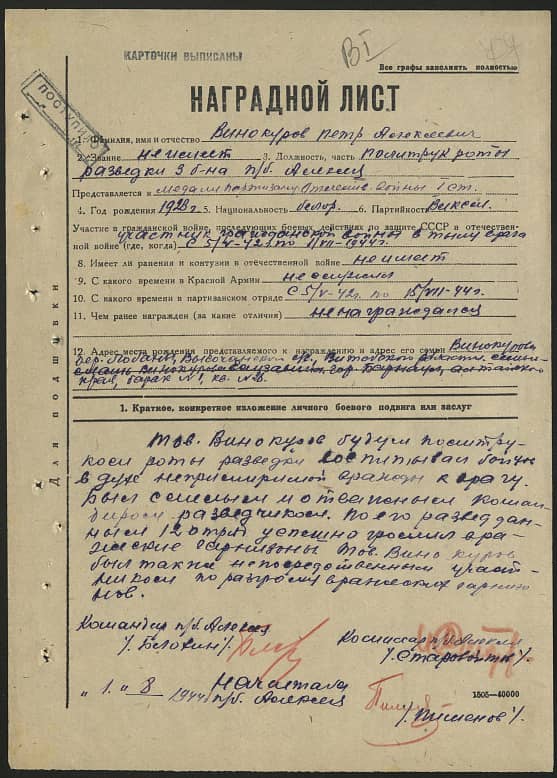 КАРТОЧКИ ВЫПИСАНЫ
Все графы заполнять полностью
ПОСТУПИЛО
НАГРАДНОЙ ЛИСТ
1. Фамилия, имя и отчество Винокуров Петр Алексеевич
2. Звание не имеет 3. Должность, часть Политрук роты
разведки 3 б-на п/б. Алексея
Представляется к медали партизану Отечеств. войны I ст.
4. Год рождения 1923 г. 5. Национальность белор. 6. Партийность
Участие в гражданской войне, последующих боевых действиях по защите СССР и отечествен-
ной войне (где, когда) участник гражданской войны в тылу врага
с 5/V-42 г. по 1944 г.
8. Имеет ли ранения и контузии в отечественной войне не имеет
9. С какого времени в Красной Армии не служил
10. С какого времени в партизанском отряде с 5/V-42 г. по 15/VII-44 г.
11. Чем ранее награжден (за какие отличия) не награждался
12. Адрес места рождения представляемого к награждению и адрес его семьи Винокурова
дер. Лобаны, Витебской области
гор. Барнаул, Алтайского
края, барак №1, кв.
Для подшивки
1. Краткое, конкретное изложение личного боевого подвига или заслуг
Тов. Винокуров будучи политру-
ком роты разведки воспитывал бойцов
в духе непримиримой вражды к врагу.
Был смелым и отважным коман-
диром разведчиком. По его разведдан-
ным 12 отряд успешно громил вра-
жеские гарнизоны. Тов. Винокуров
был также непосредственным участ-
ником по разгрому вражеских гарнизо-
нов.
Командир п/б. Алексея
/Белохин/
Комиссар п/б Алексея
/Старовойтов/
"1." 8 1944 Нач. штаба
п/б. Алексея
/Пименов/
1505—40000